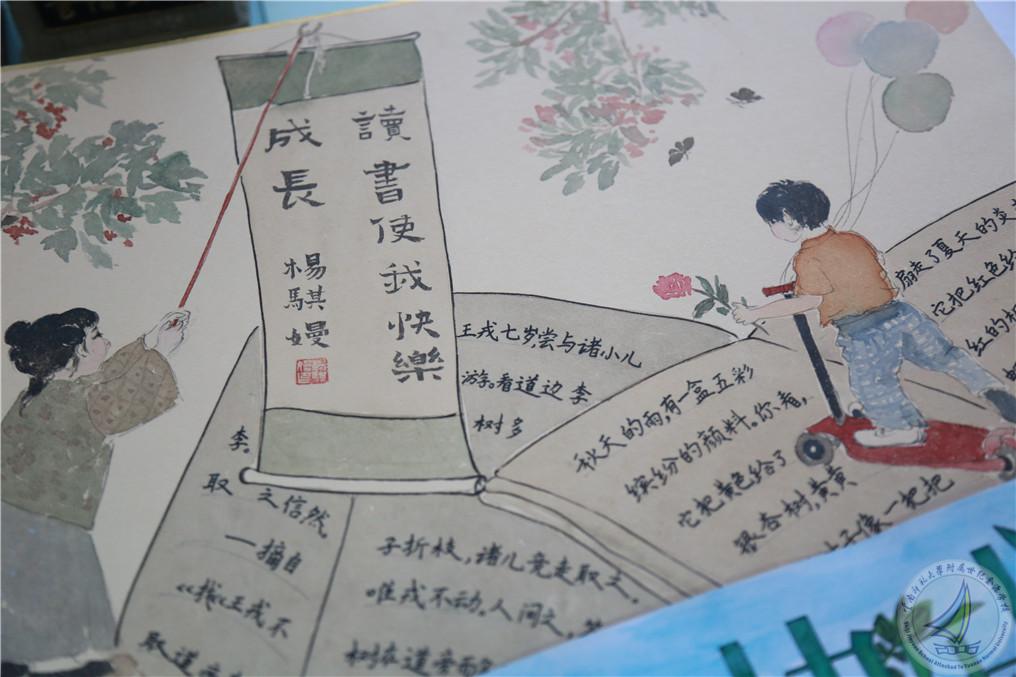 讀書使我快樂
成長
楊騏嫚
王戎七岁,尝与诸小儿
游。看道边李
树多
子折枝,诸儿竞走取之。
唯戎不动。人问之,
树在道旁而
李。
取之信然。
—摘自
取道
秋天的雨,有一盒五彩
缤纷的颜料。你看,
它把黄色给了
银杏树,黄黄
子像一把把
扇走了夏天的炎
它把红色给
红的枫